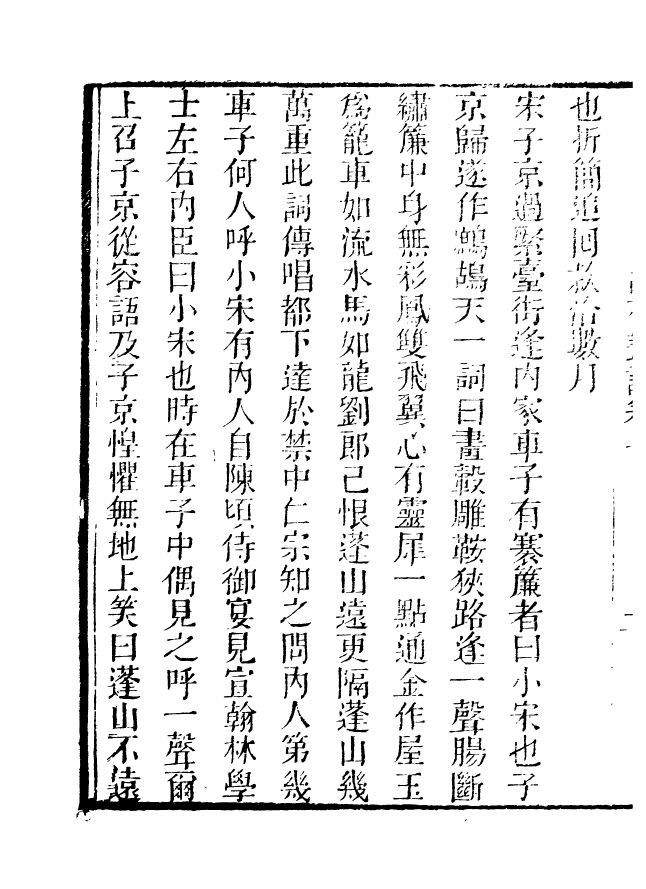 也折簡追回款洽數月
宋子京過繁臺街逢內家車子有褰簾者曰小宋也子
京歸遂作鷓鴣天一詞曰畫轂雕鞍狹路逢一聲腸斷
繡簾中身無彩鳳雙飛翼心有靈犀一點通金作屋玉
爲籠車如流水馬如龍劉郎已恨蓬山遠更隔蓬山幾
萬重此詞傳唱都下達於禁中仁宗知之問內人第幾
車子何人呼小宋有內人自陳頃侍御宴見宣翰林學
士左右內臣曰小宋也時在車子中偶見之呼一聲爾
上召子京從容語及子京惶懼無地上笑曰蓬山不遠